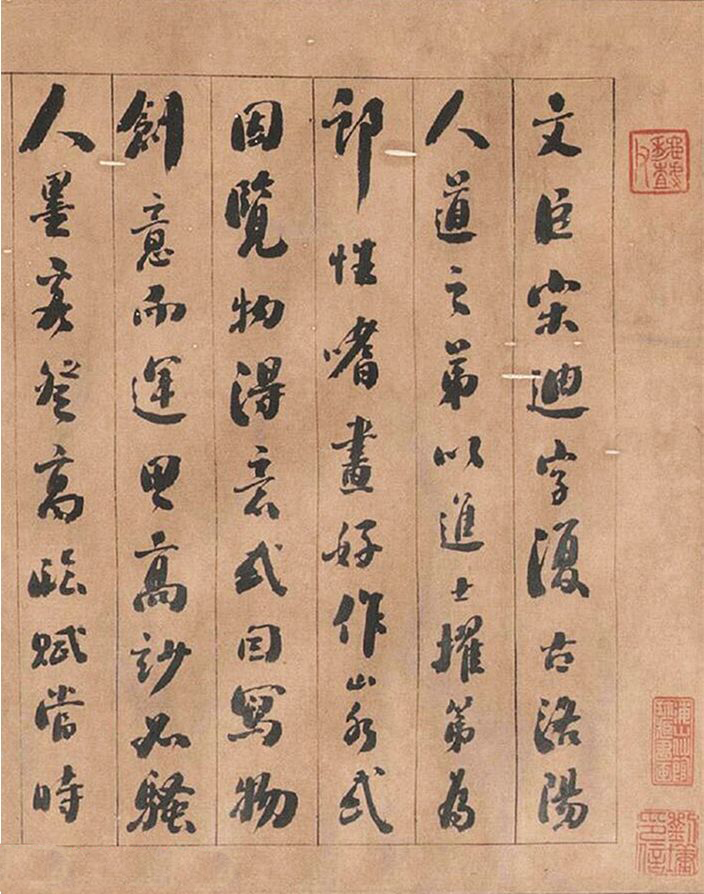 文臣宋迪字復古洛陽
人道之弟以進士擢第為
郎性嗜畫好作山水或
因覽物得意或因寫物
創意而運思高妙如騷
人墨客登高臨賦當時
劉墉印信